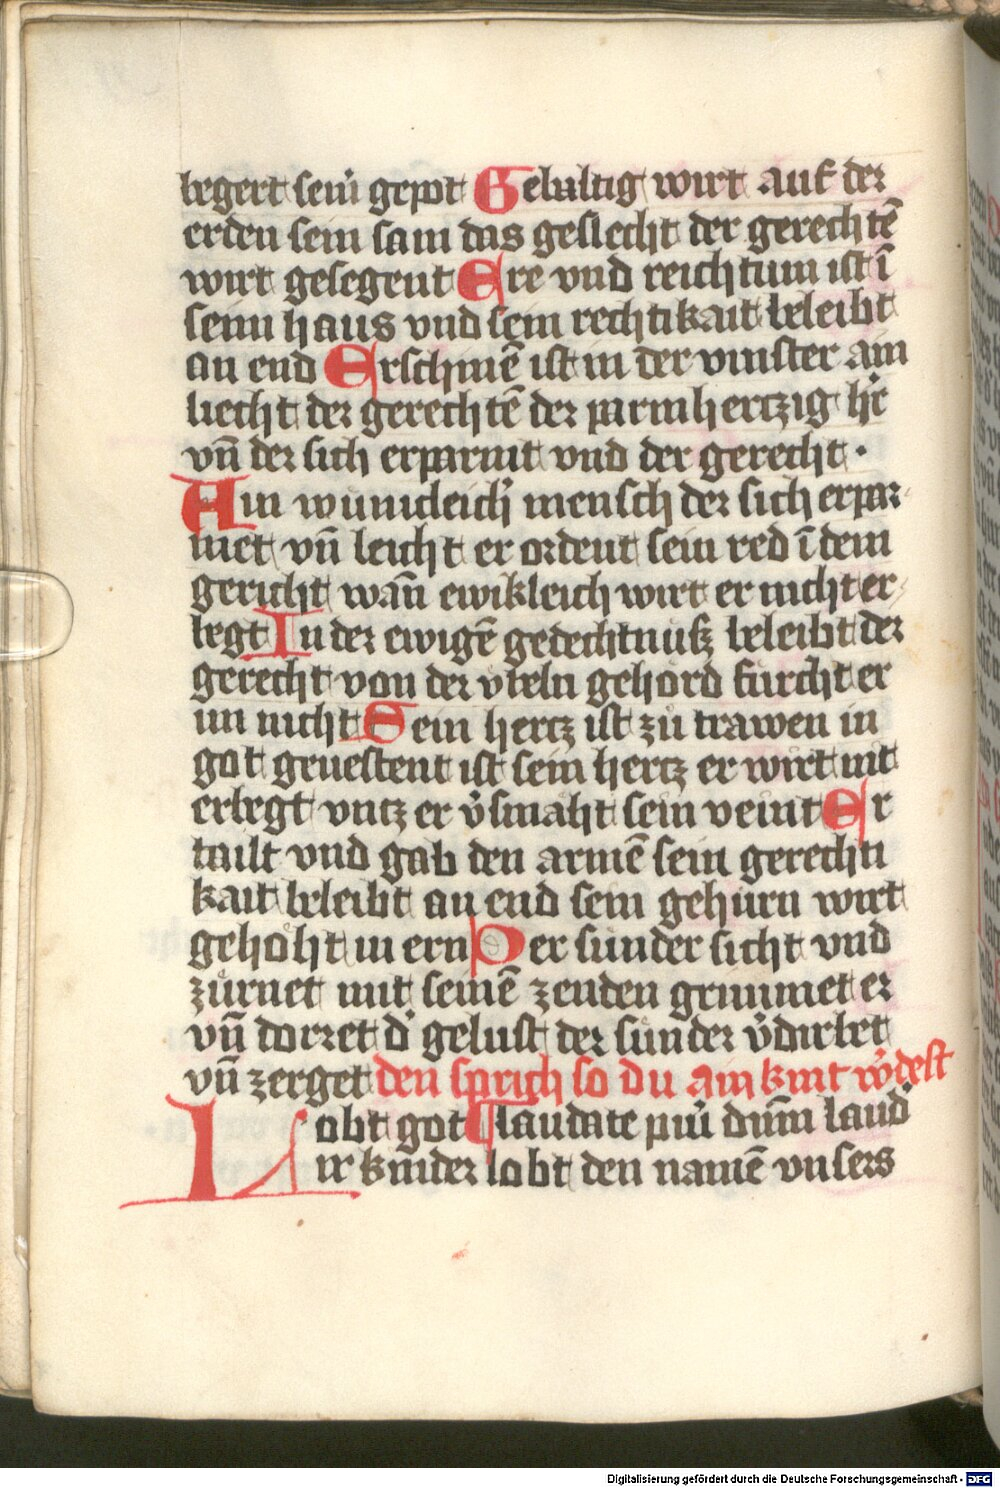 begert seiń gepot Gebaltig wirt auf der
erden sein sam das geslecht der gerechtē
wirt gesegent Ere vnd reichtum ist ī
seim haus vnd sein rechtikait beleibt
an end Erschinē ist in der vinster ain
liecht der gerechtē der parmhertzig h̓r
vn̄ der sich erparmt vnd der gerecht ·
Ain wunicleich̓ mensch der sich erpar-
met vn̄ leicht er ordent sein red ī dem
gericht wan̄ ewikleich wirt er nicht er-
begt In der ewigē gedechtnuſz beleibt der
gerecht von der vbeln gehord furcht er
im nicht Sein hertz ist zů trawen in
got geuestent ist sein hertz er wirt nit
erbegt vntz er v̓smaht sein veint Er
tailt vnd gab den armē sein gerechti
kait beleibt an end sein gehurn wirt
gehöht in ern Der sunder sicht vnd
zürnet mit seinē zenden grimmet er
vn̄ dorret d̓ gelust der sünder v̓dirbet
vn̄ zerget den sprich so du ain kint v̓desst
Lobt got laudate pūi dūm laud
ir kinder lobt den namē vnsers
Digitalisierung gefördert durch die Deutsche Forschungsgemeinschaft - DFG